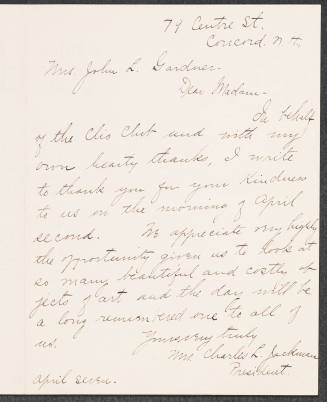 79 Centre St.
Concord, N. H.
Mrs. John L. Gardner.
Dear Madam.
In behalf
of the Clio Club and with my
own hearty thanks, I write
to thank you for your kindness
to us on the morning of April
second. We appreciate very highly
the opportunity given us to look at
so many beautiful and costly ob-
jects of art and the day will be
a long remembered one to all of
us.
Yours very truly
Mrs. Charles L. Jackman
President
april seven.